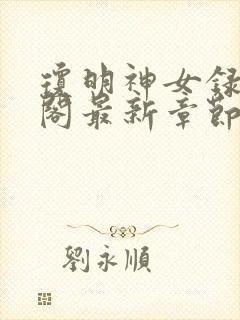 瓊明神女録
閣最新章節
劉永順